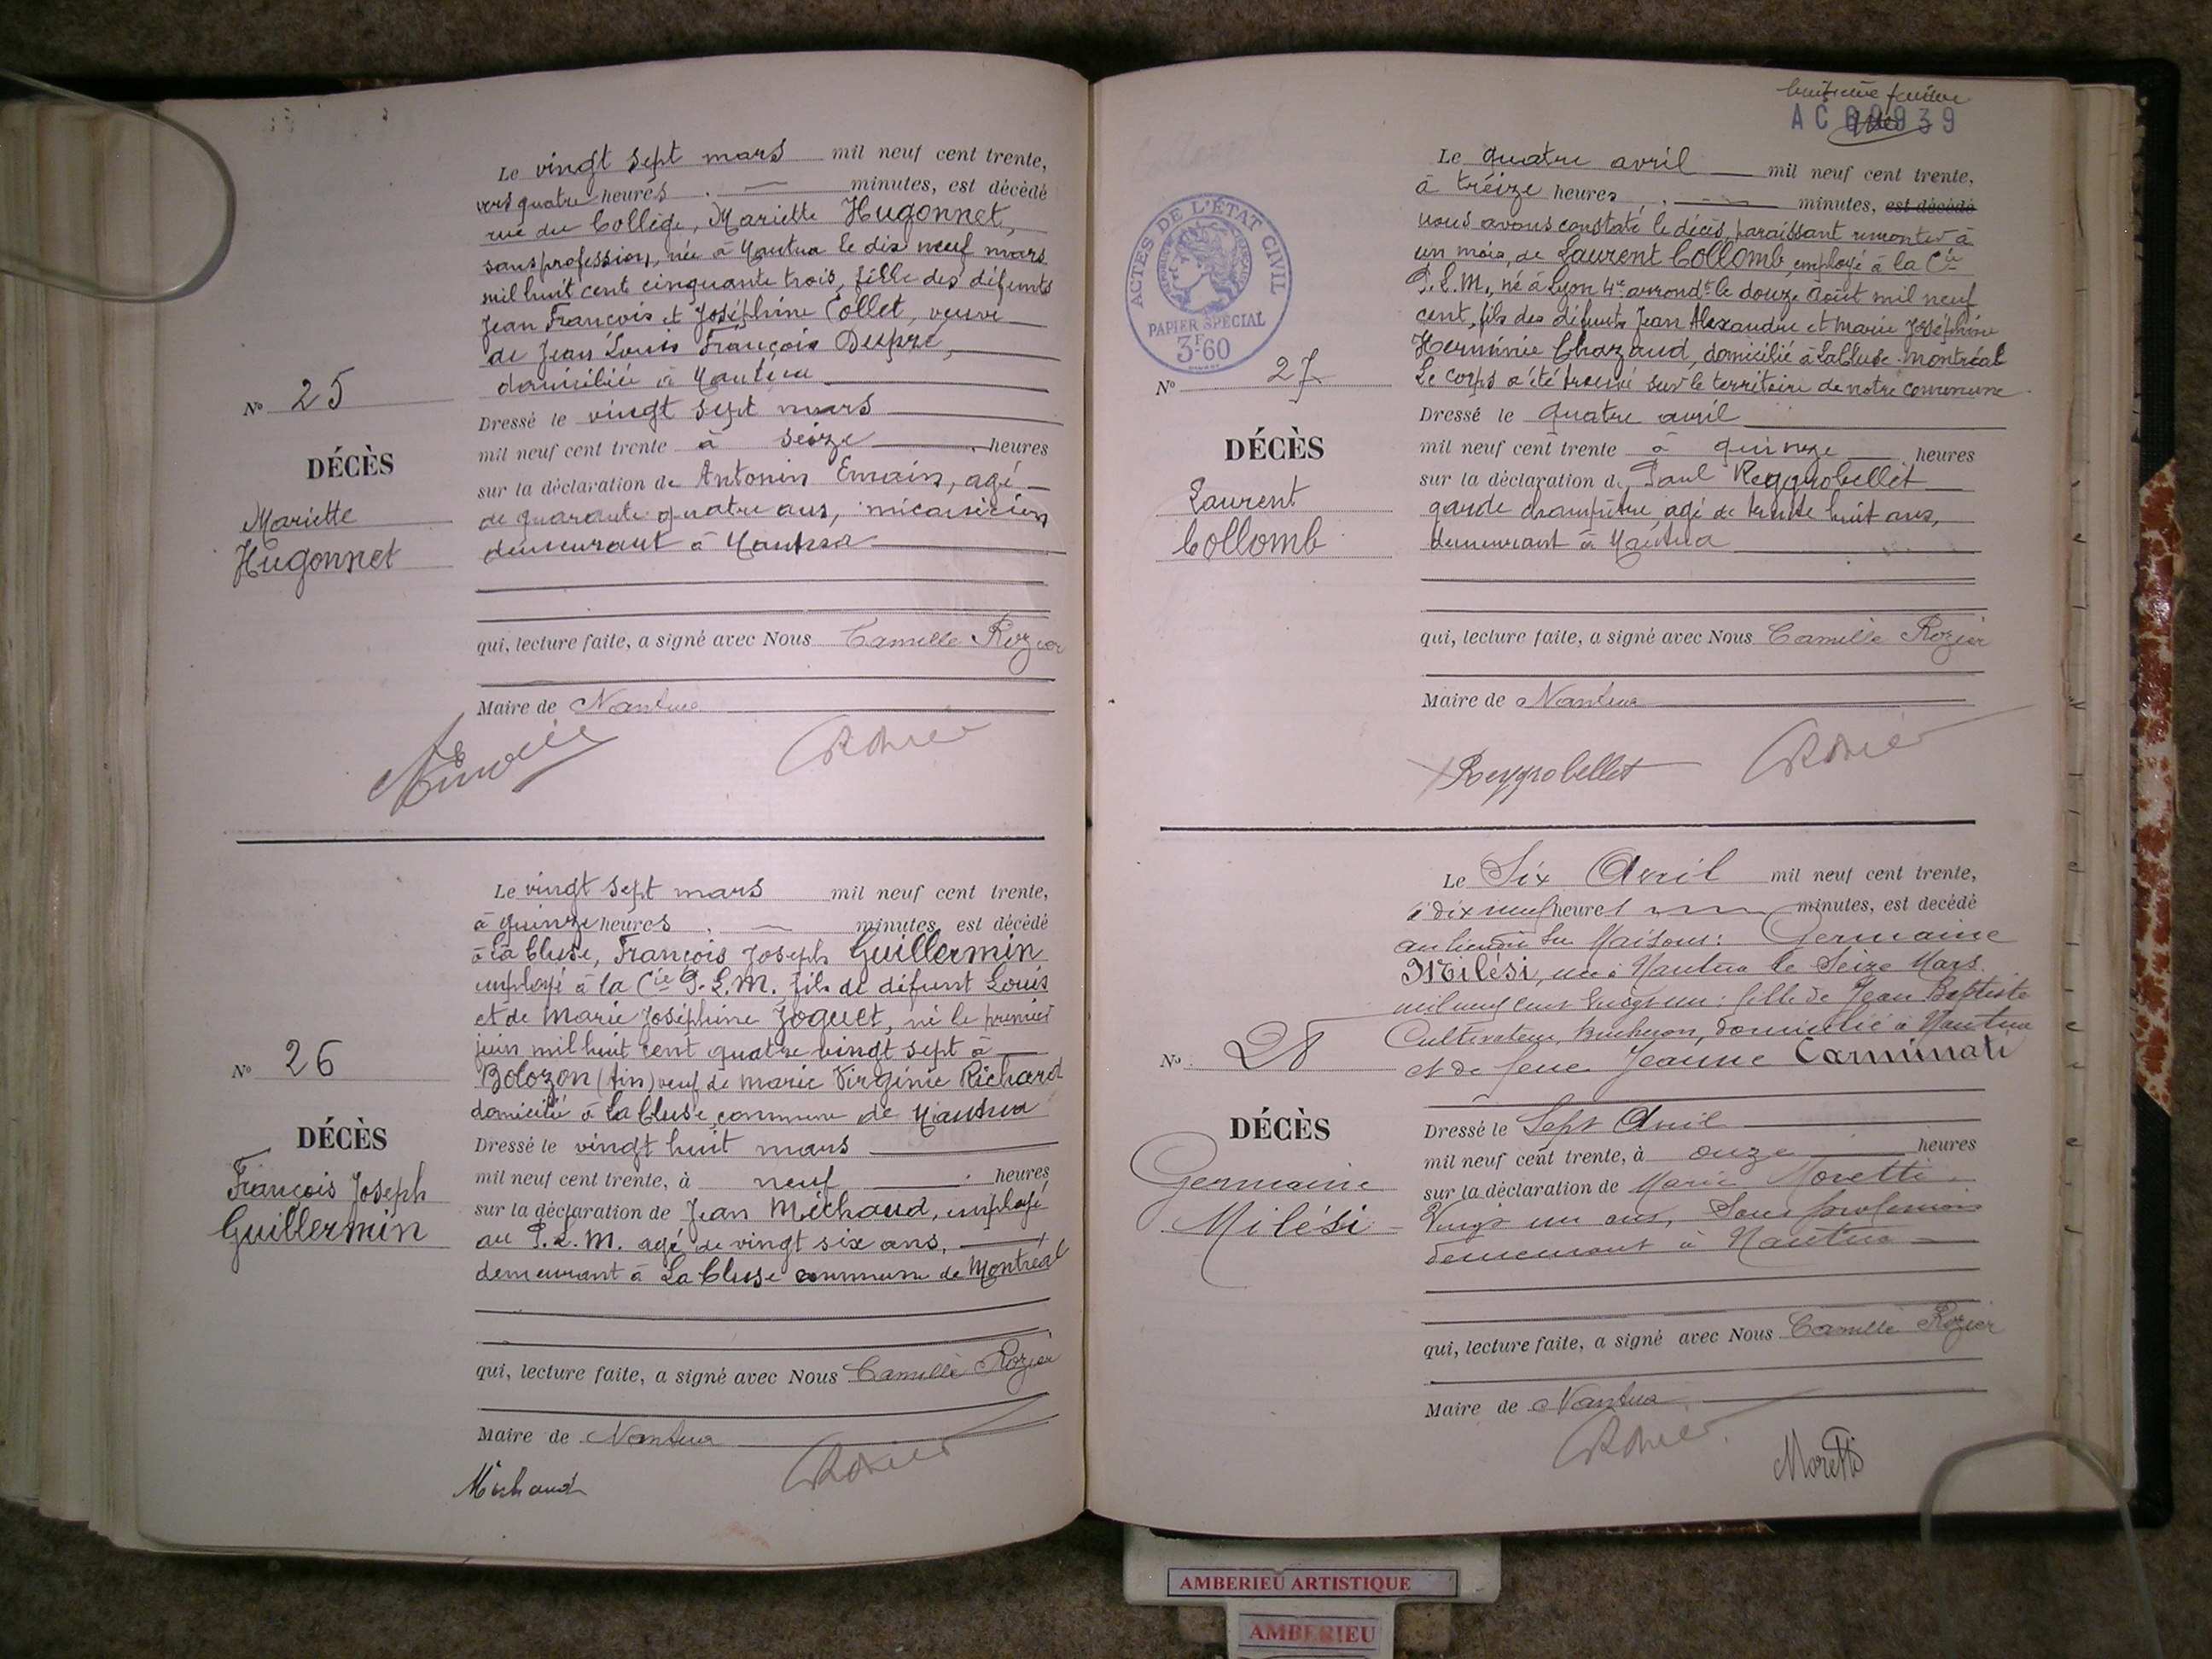 Le vingt sept mars mil neuf cent trente,
vers quatre heures minutes, est décédé
rue du Collège, Mariette Hugonnet,
sans profession, née à Nantua le dix neuf mars
mil huit cent cinquante trois, fille des défunts
Jean François et Joséphine Collet, veuve
de Jean Louis François Despré,
domiciliée à Nantua
Dressé le vingt sept mars
mil neuf cent trente à seize heures
sur la déclaration de Antonin Emain, agé
de quarante quatre ans, mécanicien
demeurant à Nantua
qui, lecture faite, a signé avec Nous Camille Rozier
Maire de Nantua
Rozier
N° 25
DÉCÈS
Mariette
Hugonnet
Le vingt sept mars mil neuf cent trente,
à quinze heures minutes, est décédé
à la Cluse, François Joseph Guillermin
employé à la Cie P.L.M. fils de défunt Louis
et de Marie Joséphine Joguet, né le premier
juin mil huit cent quatre vingt sept à
Bolozon (Ain) veuf de Marie Virginie Richard
domicilié à la Cluse, commune de Nantua
Dressé le vingt huit mars
mil neuf cent trente, à neuf heures
sur la déclaration de Jean Michaud, employé
au P.L.M. agé de vingt six ans,
demeurant à La Cluse commune de Montréal
qui, lecture faite, a signé avec Nous Camille Rozier
Maire de Nantua
Michaud Rozier
N° 26
DÉCÈS
François Joseph
Guillermin
huitième feuillet
AC 69939
ACTES DE L'ÉTAT CIVIL
PAPIER SPÉCIAL
3F60
Le quatre avril mil neuf cent trente,
à treize heures minutes, est décédé
nous avons constaté le décès, paraissant remonter à
un mois, de Laurent Collomb, employé à la Cie
P.L.M., né à Lyon 4e arrondt le douze Août mil neuf
cent, fils des défunts Jean Alexandre et Marie Joséphine
Herminie Chazaud, domicilié à LaCluse-Montréal
Le corps a été trouvé sur le territoire de notre commune
Dressé le quatre avril
mil neuf cent trente à quinze heures
sur la déclaration de Paul Reygrobellet
garde champêtre, agé de trente huit ans,
demeurant à Nantua
qui, lecture faite, a signé avec Nous Camille Rozier
Maire de Nantua
Reygrobellet Rozier
N° 27
DÉCÈS
Laurent
Collomb
Le Six Avril mil neuf cent trente,
à dix neuf heures minutes, est decédé
au lieudit Sur Maisons: Germaine
Milési, née à Nantua le Seize Mars
mil neuf cent vingt un: fille de Jean Baptiste
Cultivateur, Bucheron, domicilié à Nantua
et de feue Jeanne Carminati
Dressé le Sept Avril
mil neuf cent trente, à onze heures
sur la déclaration de Marie Moretti,
Vingt un ans, Sans profession
demeurant à Nantua
qui, lecture faite, a signé avec Nous Camille Rozier
Maire de Nantua
Rozier Moretti
N° 28
DÉCÈS
Germaine
Milési
AMBERIEU ARTISTIQUE
AMBERIEU